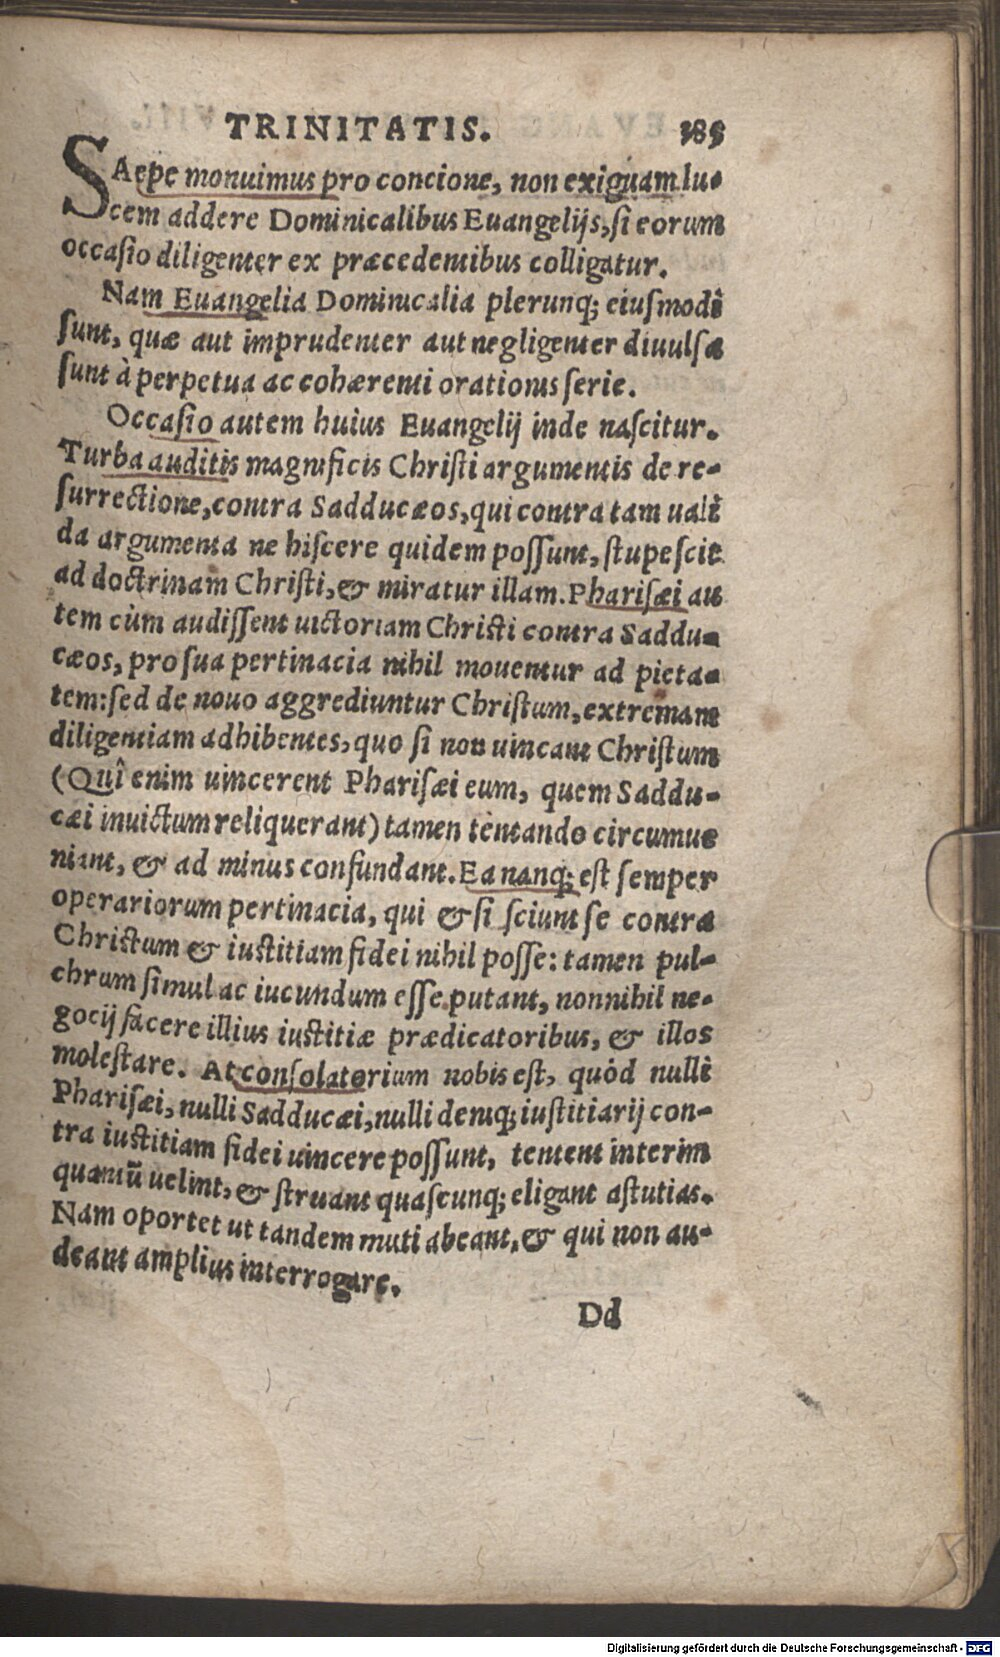 TRINITATIS. 385
SAepe monuimus pro concione, non exiguam lu-
cem addere Dominicalibus Euangelijs, si eorum
occasio diligenter ex præcedentibus colligatur.
Nam Euangelia Dominicalia plerunq; eiusmodi
sunt, quæ aut imprudenter aut negligenter diuulsa
sunt à perpetua ac cohærenti orationis serie.
Occasio autem huius Euangelij inde nascitur.
Turba auditis magnificis Christi argumentis de re-
surrectione, contra Sadducæos, qui contra tam uali
da argumenta ne hiscere quidem possunt, stupescit
ad doctrinam Christi, & miratur illam. Pharisæi au
tem cùm audissent uictoriam Christi contra Saddu-
cæos, pro sua pertinacia nihil mouentur ad pieta-
tem: sed de nouo aggrediuntur Christum, extremam
diligentiam adhibentes, quo si non uincant Christum
(Quî enim uincerent Pharisæi eum, quem Saddu-
cæi inuictum reliquerant) tamen tentando circumue
niant, & ad minus confundant. Ea nanq; est semper
operariorum pertinacia, qui & si sciunt se contra
Christum & iustitiam fidei nihil posse: tamen pul-
chrum simul ac iucundum esse putant, nonnihil ne-
gocij facere illius iustitiæ prædicatoribus, & illos
molestare. At consolatorium nobis est, quòd nulli
Pharisæi, nulli Sadducæi, nulli deniq; iustitiarij con-
tra iustitiam fidei uincere possunt, tentent interim
quantũ uelint, & struant quascunq; eligant astutias.
Nam oportet ut tandem muti abeant, & qui non au-
deant amplius interrogare.
Dd
Digitalisierung gefördert durch die Deutsche Forschungsgemeinschaft - DFG